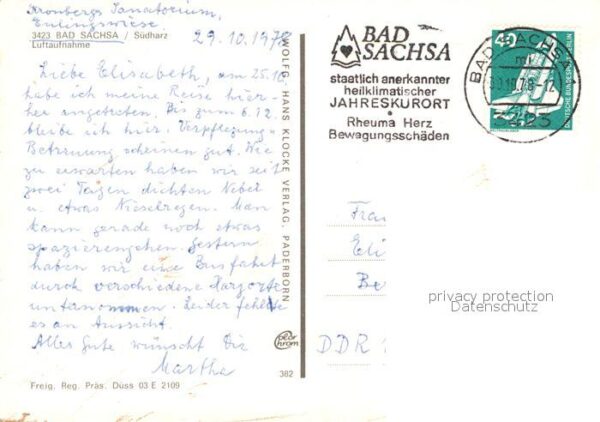 Kronbergs Sanatorium,
Eulingswiese
3423 BAD SACHSA / Südharz
Luftaufnahme
29.10.1978
Liebe Elisabeth, am 25.10.
habe ich meine Reise hier-
her angetreten. Bis zum 6.12.
bleibe ich hier. Verpflegung
Betreuung scheinen gut. Wie
zu erwarten haben wir seit
zwei Tagen dichten Nebel
u. etwas Nieselregen. Man
kann gerade noch etwas
spazierengehen. Gestern
haben wir eine Busfahrt
durch verschiedene Harzorte
unternommen. Leider fehlte
es an Aussicht.
Alles Gute wünscht Dir
Martha
Freig. Reg. Präs. Düss 03 E 2109
WOLFG. HANS KLOCKE VERLAG, PADERBORN
color
chrom
382
BAD
SACHSA
staatlich anerkannter
heilklimatischer
JAHRESKURORT
Rheuma Herz
Bewegungsschäden
BAD SACHSA
ml
-12
3423
40
DEUTSCHE BUNDESPOST BERLIN
Frau
Eli
Be
DDR
privacy protection
Datenschutz